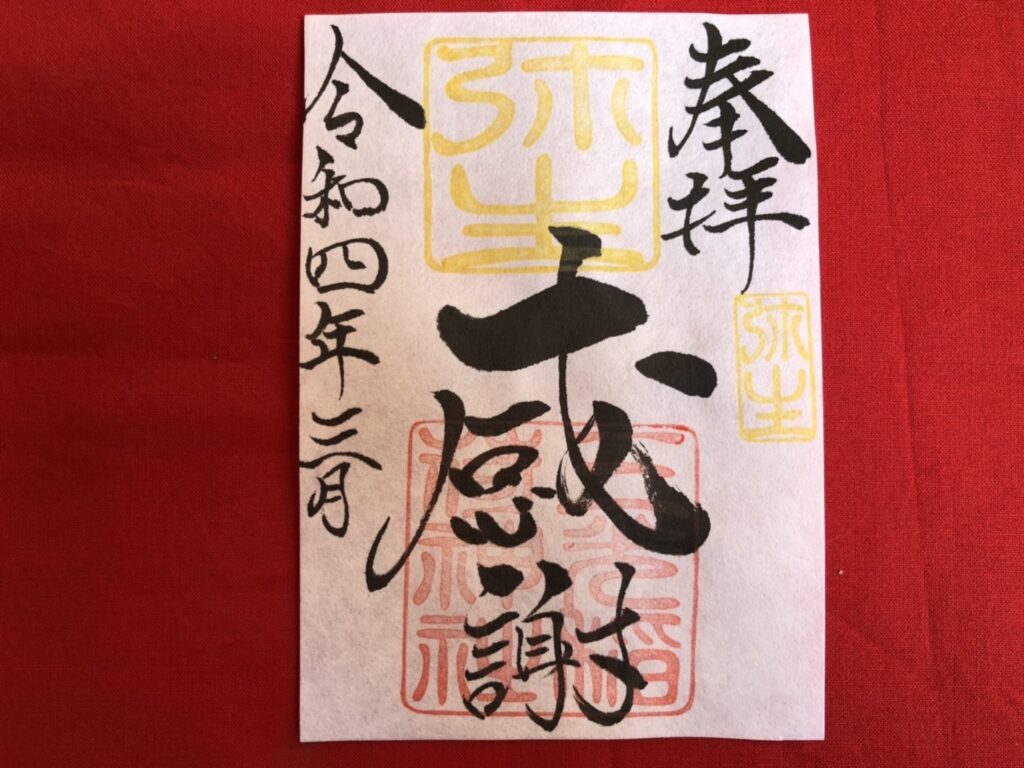 奉拝
弥生
弥生
感謝
令和四年三月